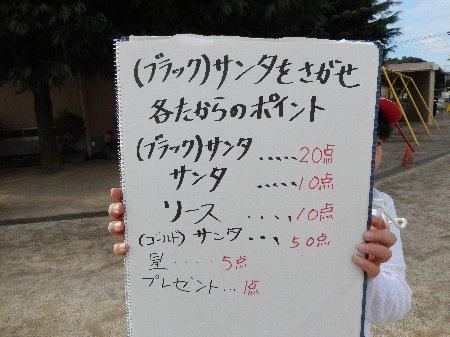 (ブラック)サンタをさがせ
各たからのポイント
(ブラック)サンタ.....20点
サンタ.....10点
リース....10点
(ゴールド)サンタ...50点
星.....5点
プレゼント...1点